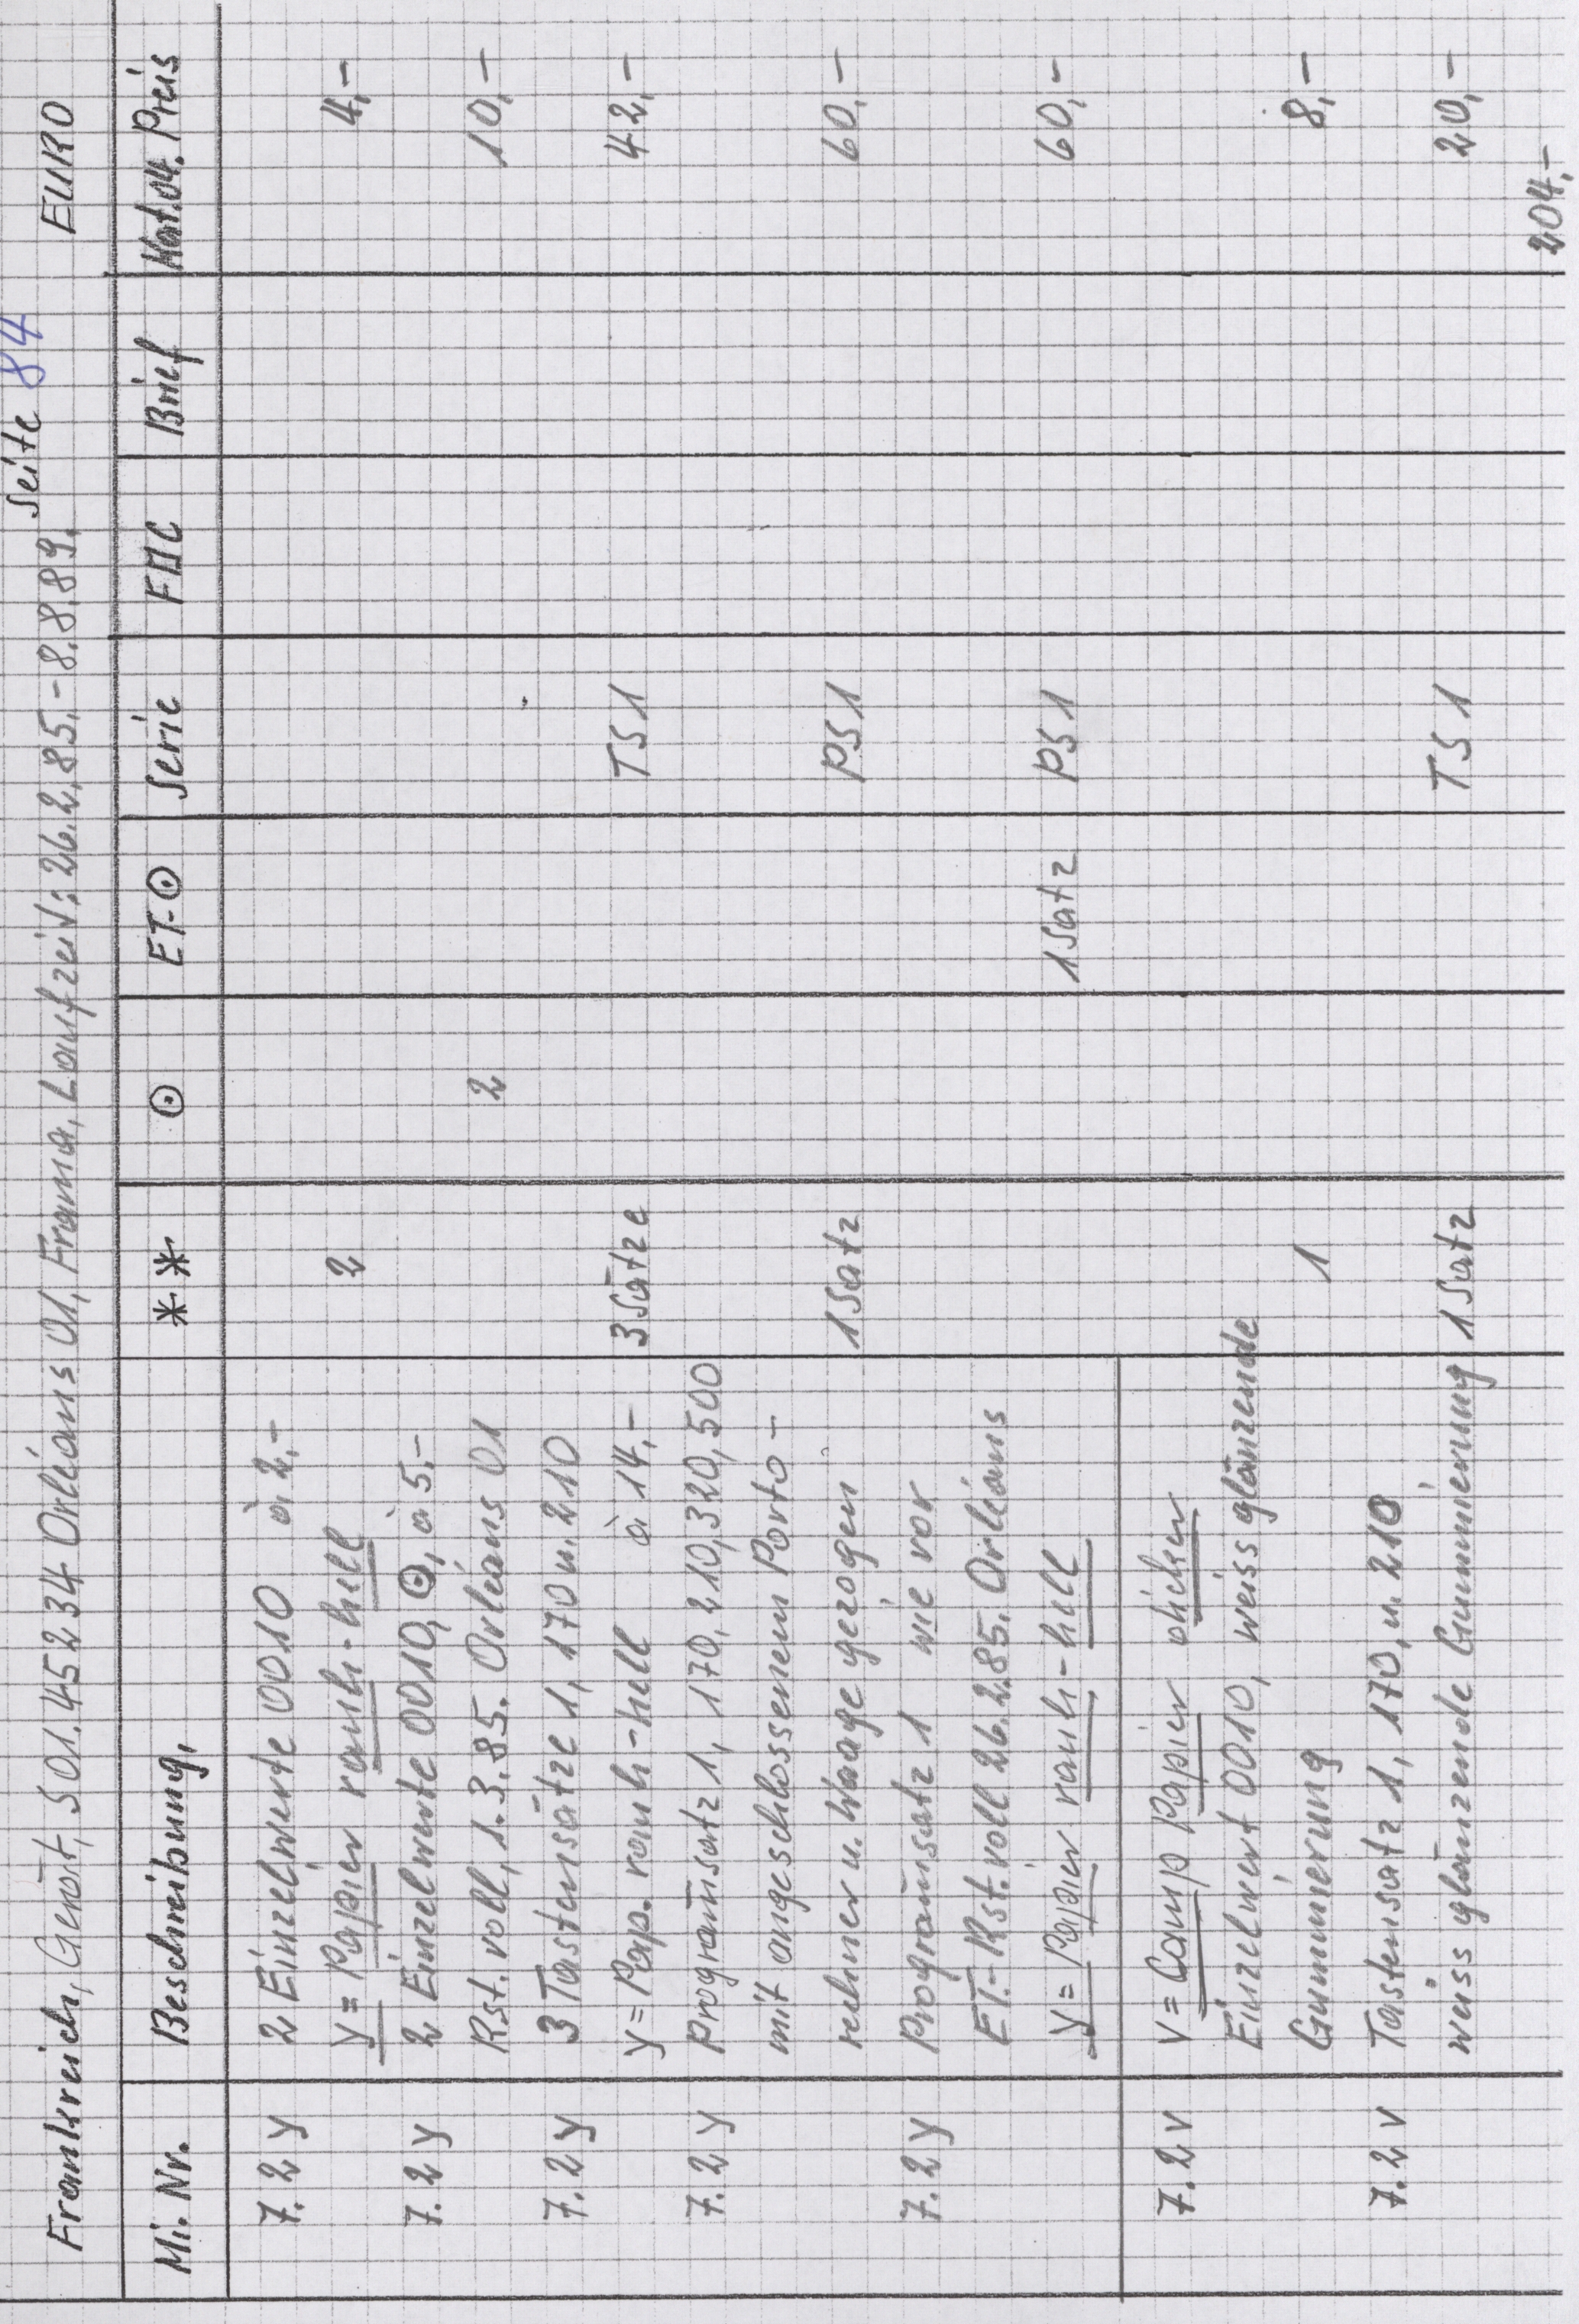 Seite 84
Frankreich, Gerät, 501.45234 Orléans 01, Frama, Laufzeit: 26.2.85.-8.8.89. EURO
Mi. Nr. Beschreibung, ** ⊙ ET-⊙ Serie FDC Brief Kat.04. Preis
7.2 y 2 Einzelwerte 0010 à 2,-
y = Papier rauh-hell 2 4,-
7.2 y 2 Einzelwerte 0010, ⊙, à 5.-
Rst. voll, 1.3.85. Orléans 01 2 10,-
7.2 y 3 Tastensätze 1, 170 u. 210
y = Pap. rauh-hell à 14,- 3 Sätze TS 1 42,-
7.2 y Programsatz 1, 170, 210, 320, 500
mit angeschlossenem Porto-
rechner u. Waage gezogen 1 Satz PS 1 60,-
7.2 y Programsatz 1 wie vor
ET.-Rst. voll 26.2.85. Orléans
y = Papier rauh-hell 1 Satz PS 1 60,-
7.2 v v = Camp Papier dicker
Einzelwert 0010, weiss glänzende
Gummierung 1 8,-
7.2 v Tastensatz 1, 170, u. 210
weiss glänzende Gummierung 1 Satz TS 1 20,-
204,-